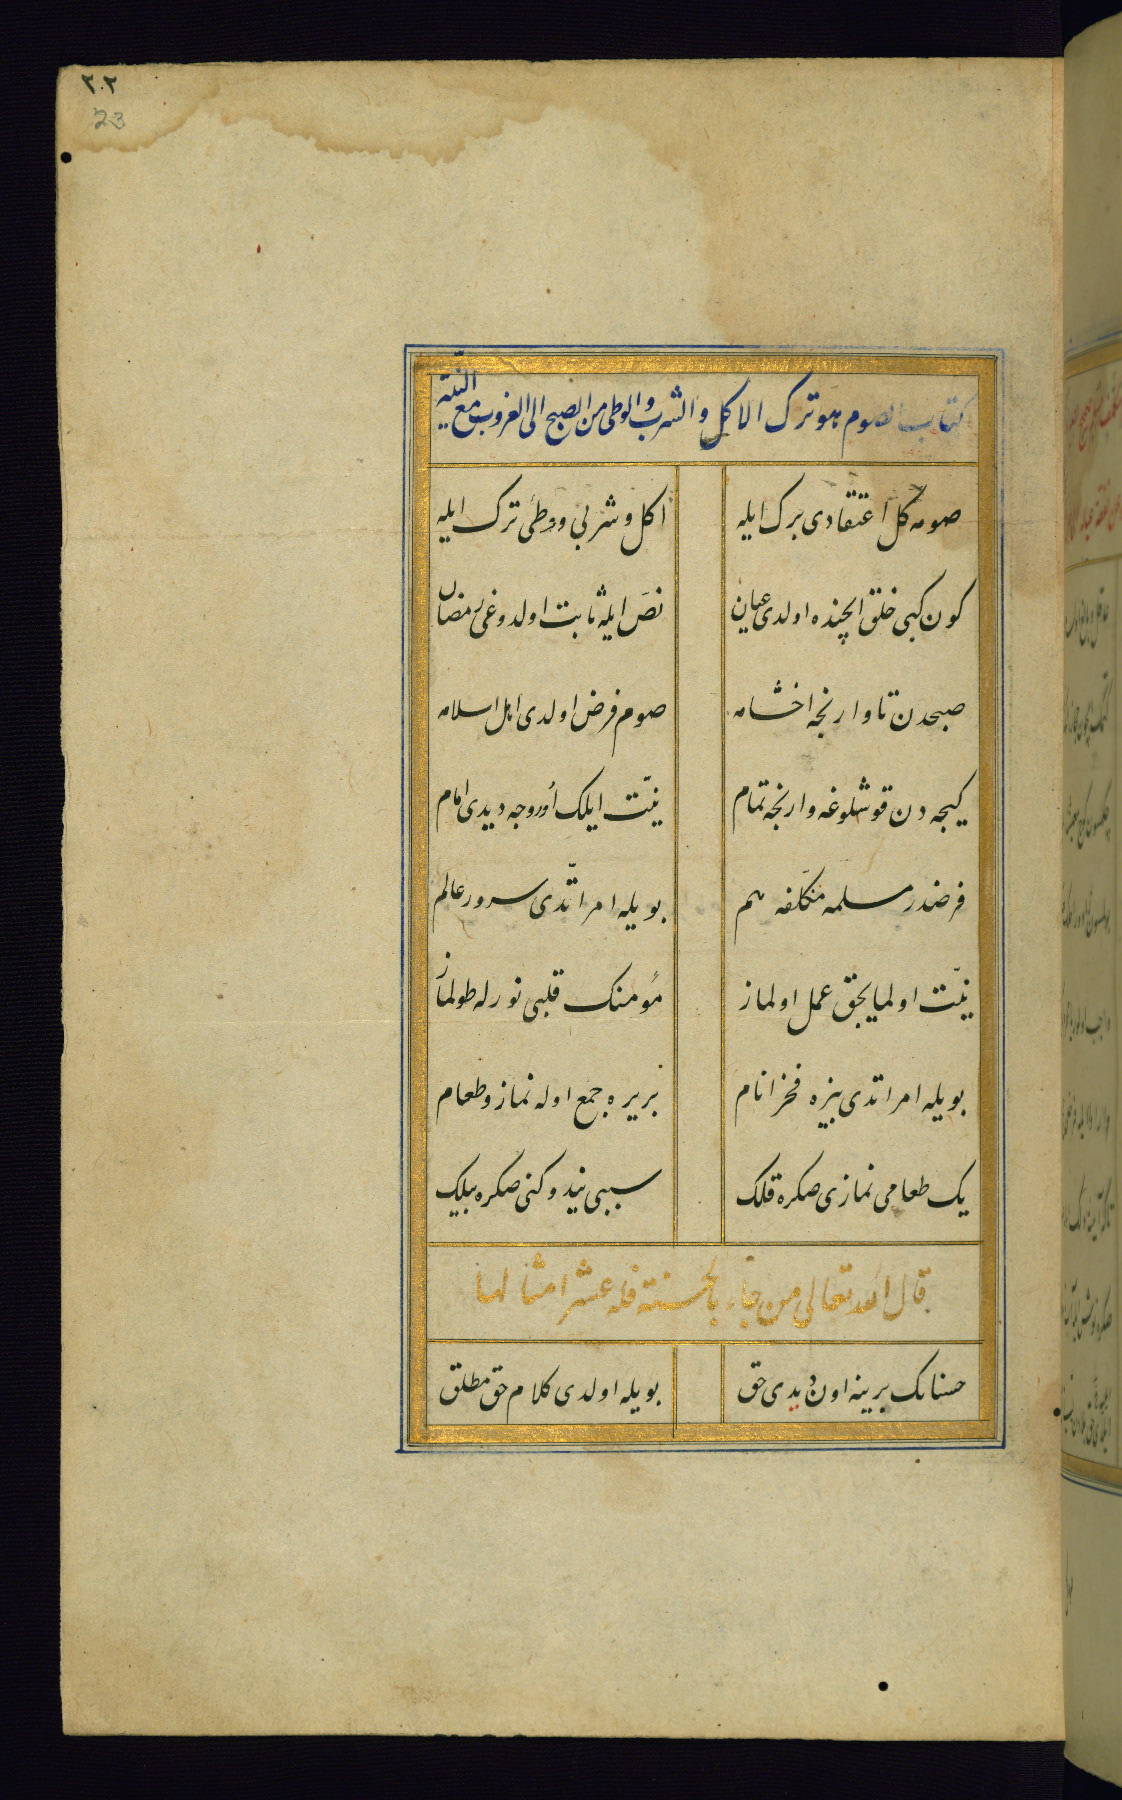 ٢٠٢
23
كتاب الصوم هو ترك الاكل والشرب والوطى من الصبح الى الغروب مع النيّة
صومه گل اعتقادى برك ايله اكل و شربى و وطئ ترك ايله
كون كبى خلق ايچنده اولدى عيان نصّ ايله ثابت اولدوغى رمضان
صبحدن تا وارنجه اخشامه صوم فرض اولدى اهل اسلامه
كيجه دن قوشلوغه وارنجه تمام نيّت ايلك اوروجه ديدى امام
فرضدر مسلمه مكلّفه هم بويله امر اتّدى سرور عالم
نيّت اولمايجق عمل اولماز مؤمنك قلبى نورله طولماز
بويله امر اتدى بزه فخر انام بريره جمع اوله نماز و طعام
يك طعامى نمازى صكره قلك سببى نيدوكنى صكره بيلك
قال الله تعالى من جاء بالحسنة فله عشر امثالها
حسنانك برينه اون ديدى حق بويله اولدى كلام حق مطلق